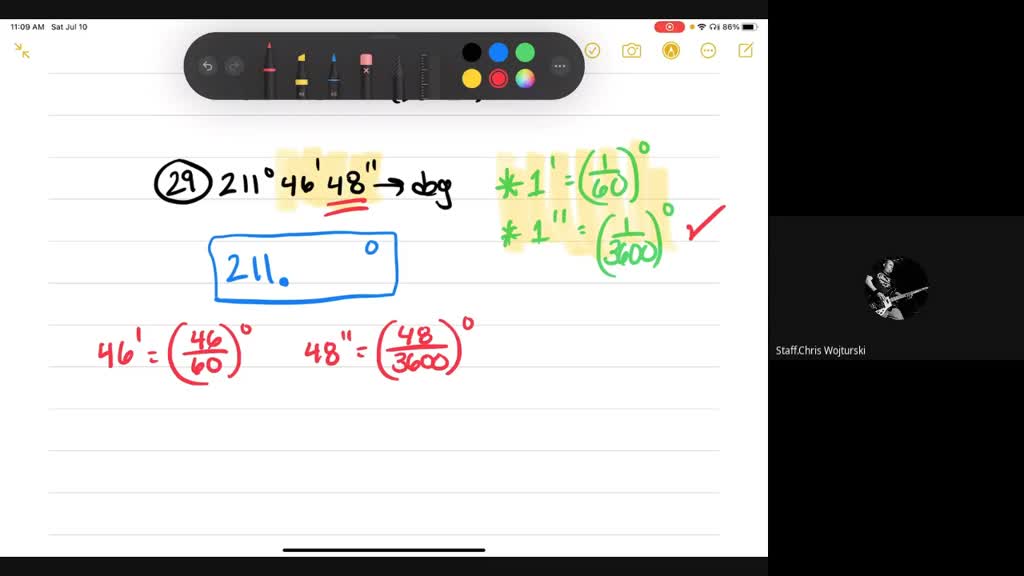 11:09 AM Sat Jul 10
86%
29 211° 46' 48" → deg
* 1' = (1/60)°
* 1" = (1/3600)° ✓
211. °
46' = (46/60)° 48" = (48/3600)°
Staff.Chris Wojturski